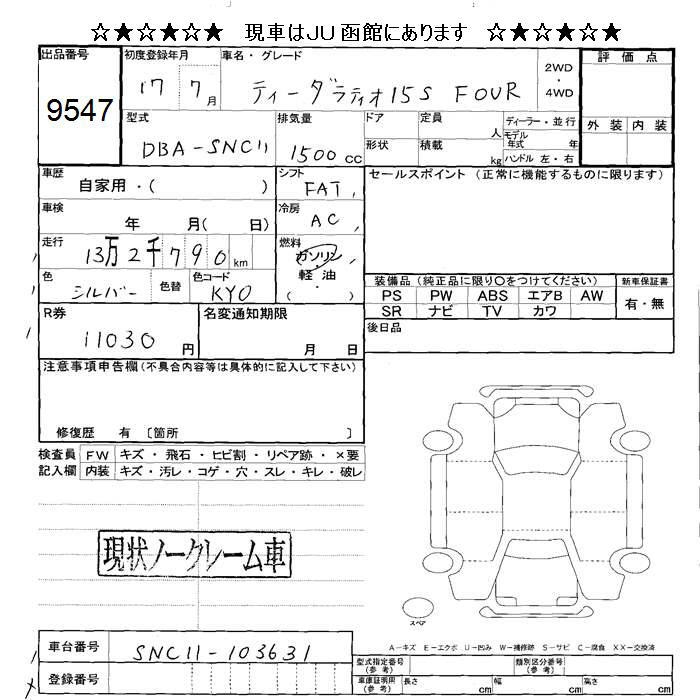 ☆★☆★☆★ 現車はJU函館にあります ☆★☆★☆★
出品番号 9547
初度登録年月 17 7月
車名・グレード ティーダラティオ15S FOUR
2WD・4WD
評価点
外装 内装
型式 DBA-SNC11
排気量 1500cc
ドア 定員 人
形状 積載 kg
ディーラー・並行
モデル年式 年
ハンドル 左・右
車歴 自家用・( )
シフト FAT,
セールスポイント (正常に機能するものに限ります)
車検 年 月( 日)
冷房 AC,
走行 13万2千790km
燃料 ガソリン・軽油 ( )
色 シルバー 色替 色コード KY0
装備品 (純正品に限り〇をつけてください)
PS PW ABS エアB AW
SR ナビ TV カワ
新車保証書 有・無
R券 11030円
名変通知期限 月 日
後日品
注意事項申告欄(不具合内容等は具体的に記入して下さい)
修復歴 有 〔箇所 〕
検査員記入欄
FW キズ・飛石・ヒビ割・リペア跡・×要
内装 キズ・汚レ・コゲ・穴・スレ・キレ・破レ
現状ノークレーム車
スペア
A-キズ E-エクボ U-凹み W-補修跡 S-サビ C-腐食 XX-交換済
車台番号 SNC11-103631
登録番号
型式指定番号(参考)
類別区分番号(参考)
車庫証明用(参考) 長さ cm 幅 cm 高さ cm